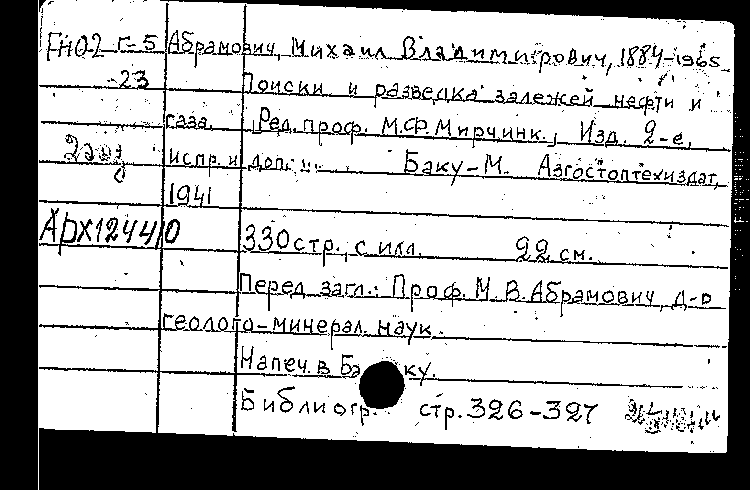 ГН02 г-5 Абрамович, Михаил Владимирович, 1884-1965
-23 Поиски и разведка залежей нефти и
газа. Ред. проф. М.Ф. Мирчинк., Изд. 2-е,
испр. и доп. Баку-М. Азгостоптехиздат,
1941
Арх12441/0 330 стр., с илл. 22 см.
Перед загл.: Проф. М. В. Абрамович, д-р
геолого-минерал. наук.
Напеч. в Баку.
Библиогр. стр. 326-327